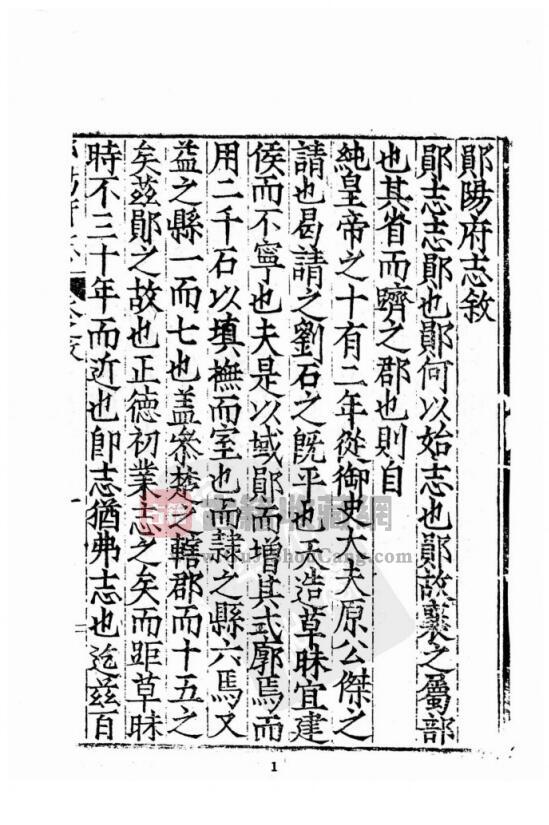 鄖陽府志敘
鄖志志鄖也鄖何以始志也鄖故襄之屬部
也其省而躋之郡也則自
純皇帝之十有二年從御史大夫原公傑之
請也曷請之劉石之既平也天造草昧宜建
侯而不寧也夫是以域鄖而增其式廓焉而
用二千石以填撫而室也而隸之縣六焉又
益之縣一而七也盖叅楚之轄郡而十五之
矣茲鄖之故也正德初業志之矣而距草昧
時不三十年而近也卽志猶弗志也迄茲百
1